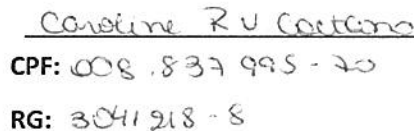 Caroline R V Caetano
CPF: 008.837 995-70
RG: 3041218-8